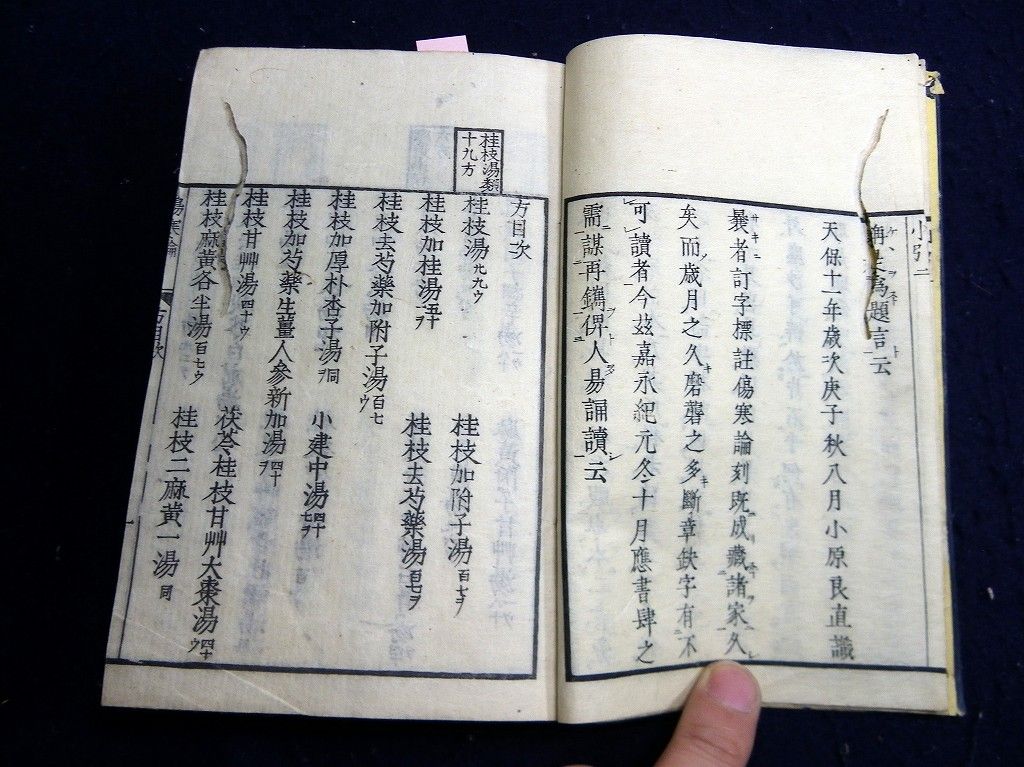 爲題言云
天保十一年歳次庚子秋八月小原良直識
曩者訂字標註傷寒論刻既成藏諸家久
矣而歳月之久磨礱之多斷章缺字有不
可讀者今茲嘉永紀元冬十月應書肆之
需謀再鐫俾人易誦讀云
方目次
桂枝湯類
十九方
桂枝湯九九ウ
桂枝加附子湯百七ヲ
桂枝加桂湯五十一ヲ
桂枝去芍藥湯百七ヲ
桂枝去芍藥加附子湯百七ウ
桂枝加厚朴杏子湯同ヲ
小建中湯四十七ヲ
桂枝加芍藥生薑人參新加湯四十ヲ
桂枝甘艸湯四十ウ
茯苓桂枝甘艸大棗湯四十ウ
桂枝麻黃各半湯百七ウ
桂枝二麻黃一湯同
方目次